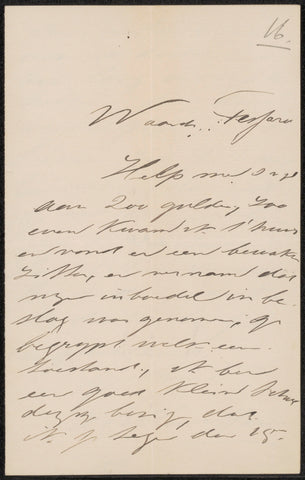 16.
Waarde Tessaro
Help me
aan 200 gulden, zoo
even kwam ik t'huis
en vond er een bewaker
zitten, en vernam dat
mijn inboedel in be-
slag was genomen, gij
begrijpt welk een
toestand, ik ben
een goed klein
bezig, dat
ik tegen den 15